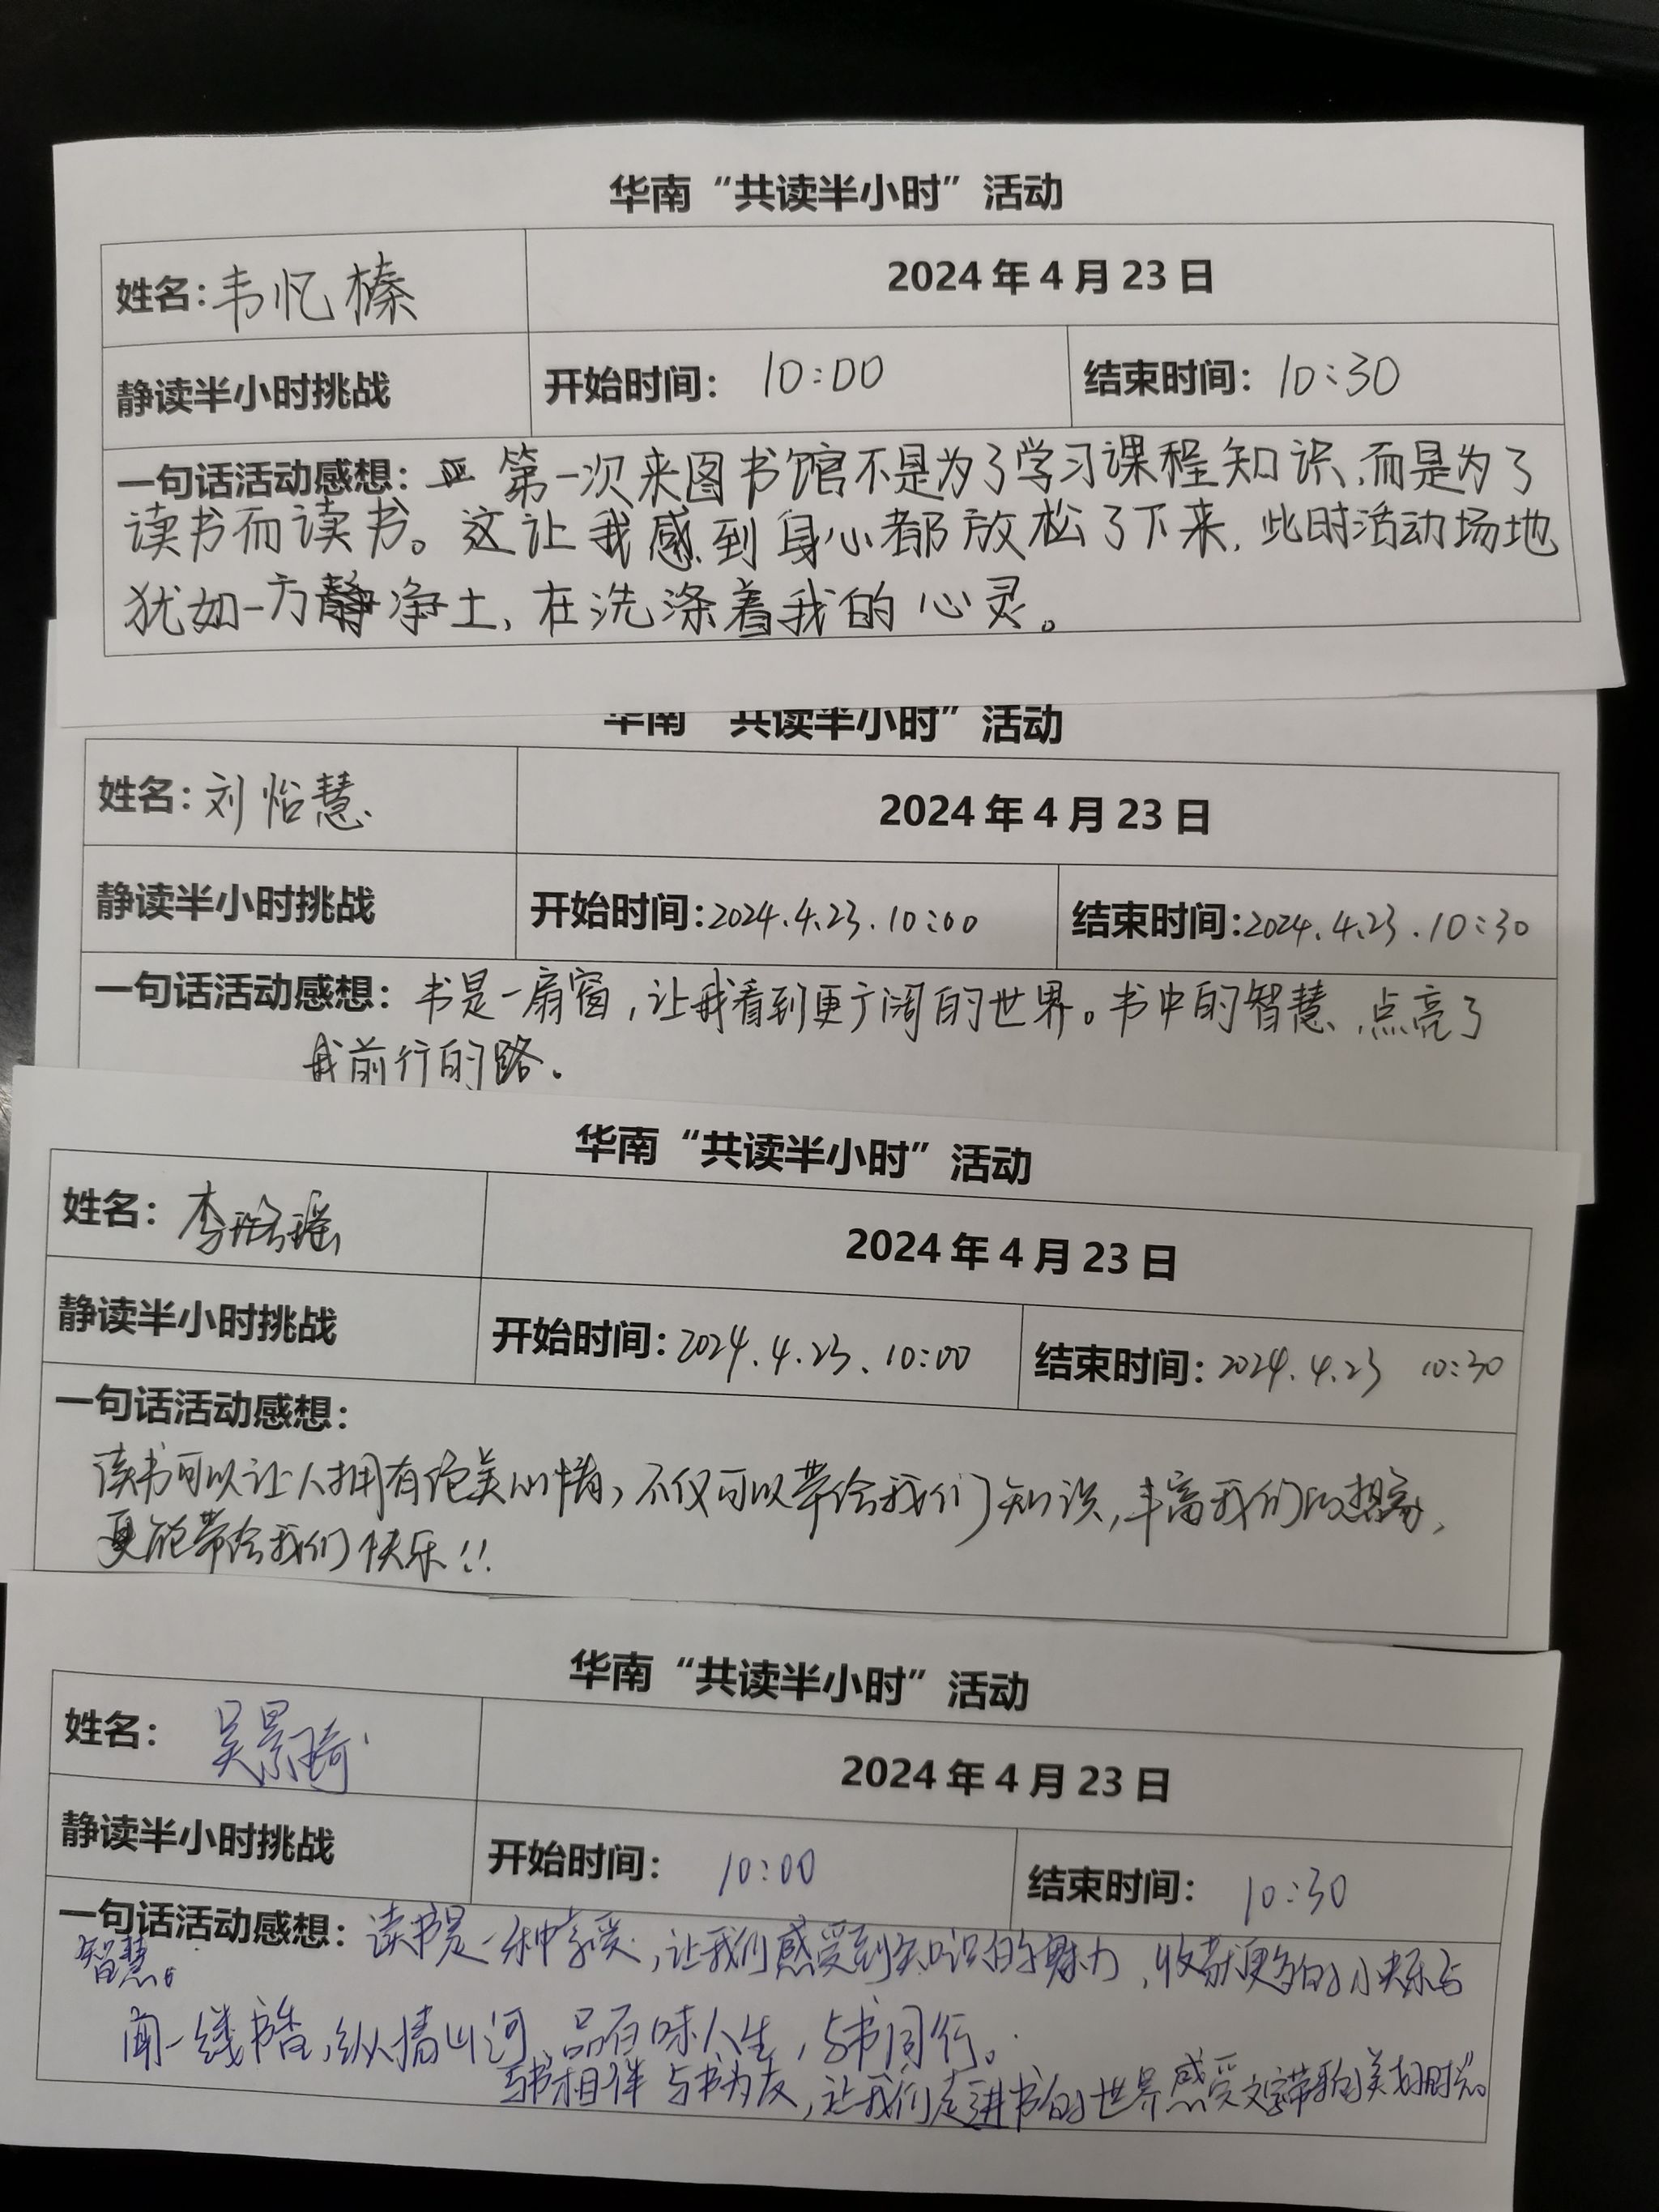 华南“共读半小时”活动
姓名：韦忆榛
2024年4月23日
静读半小时挑战
开始时间：10:00
结束时间：10:30
一句话活动感想：第一次来图书馆不是为了学习课程知识，而是为了
读书而读书。这让我感到身心都放松了下来，此时活动场地
犹如一方净土，在洗涤着我的心灵。
华南“共读半小时”活动
姓名：刘怡慧
2024年4月23日
静读半小时挑战
开始时间：2024.4.23.10:00
结束时间：2024.4.23.10:30
一句话活动感想：书是一扇窗，让我看到更广阔的世界。书中的智慧，点亮了
我前行的路。
华南“共读半小时”活动
姓名：李瑶
2024年4月23日
静读半小时挑战
开始时间：2024.4.23.10:00
结束时间：2024.4.23 10:30
一句话活动感想：
读书可以让人拥有绝美心情，不仅可以带给我们知识，丰富我们的想象，
更能带给我们快乐！！
华南“共读半小时”活动
姓名：吴景琦
2024年4月23日
静读半小时挑战
开始时间：10:00
结束时间：10:30
一句话活动感想：读书是一种享受，让我们感受到知识的魅力，收获更多的小快乐与
智慧。
闻一缕书香，纵情山河，品百味人生，与书同行。
与书相伴 与书为友，让我们走进书的世界感受文字带来的美好时光。